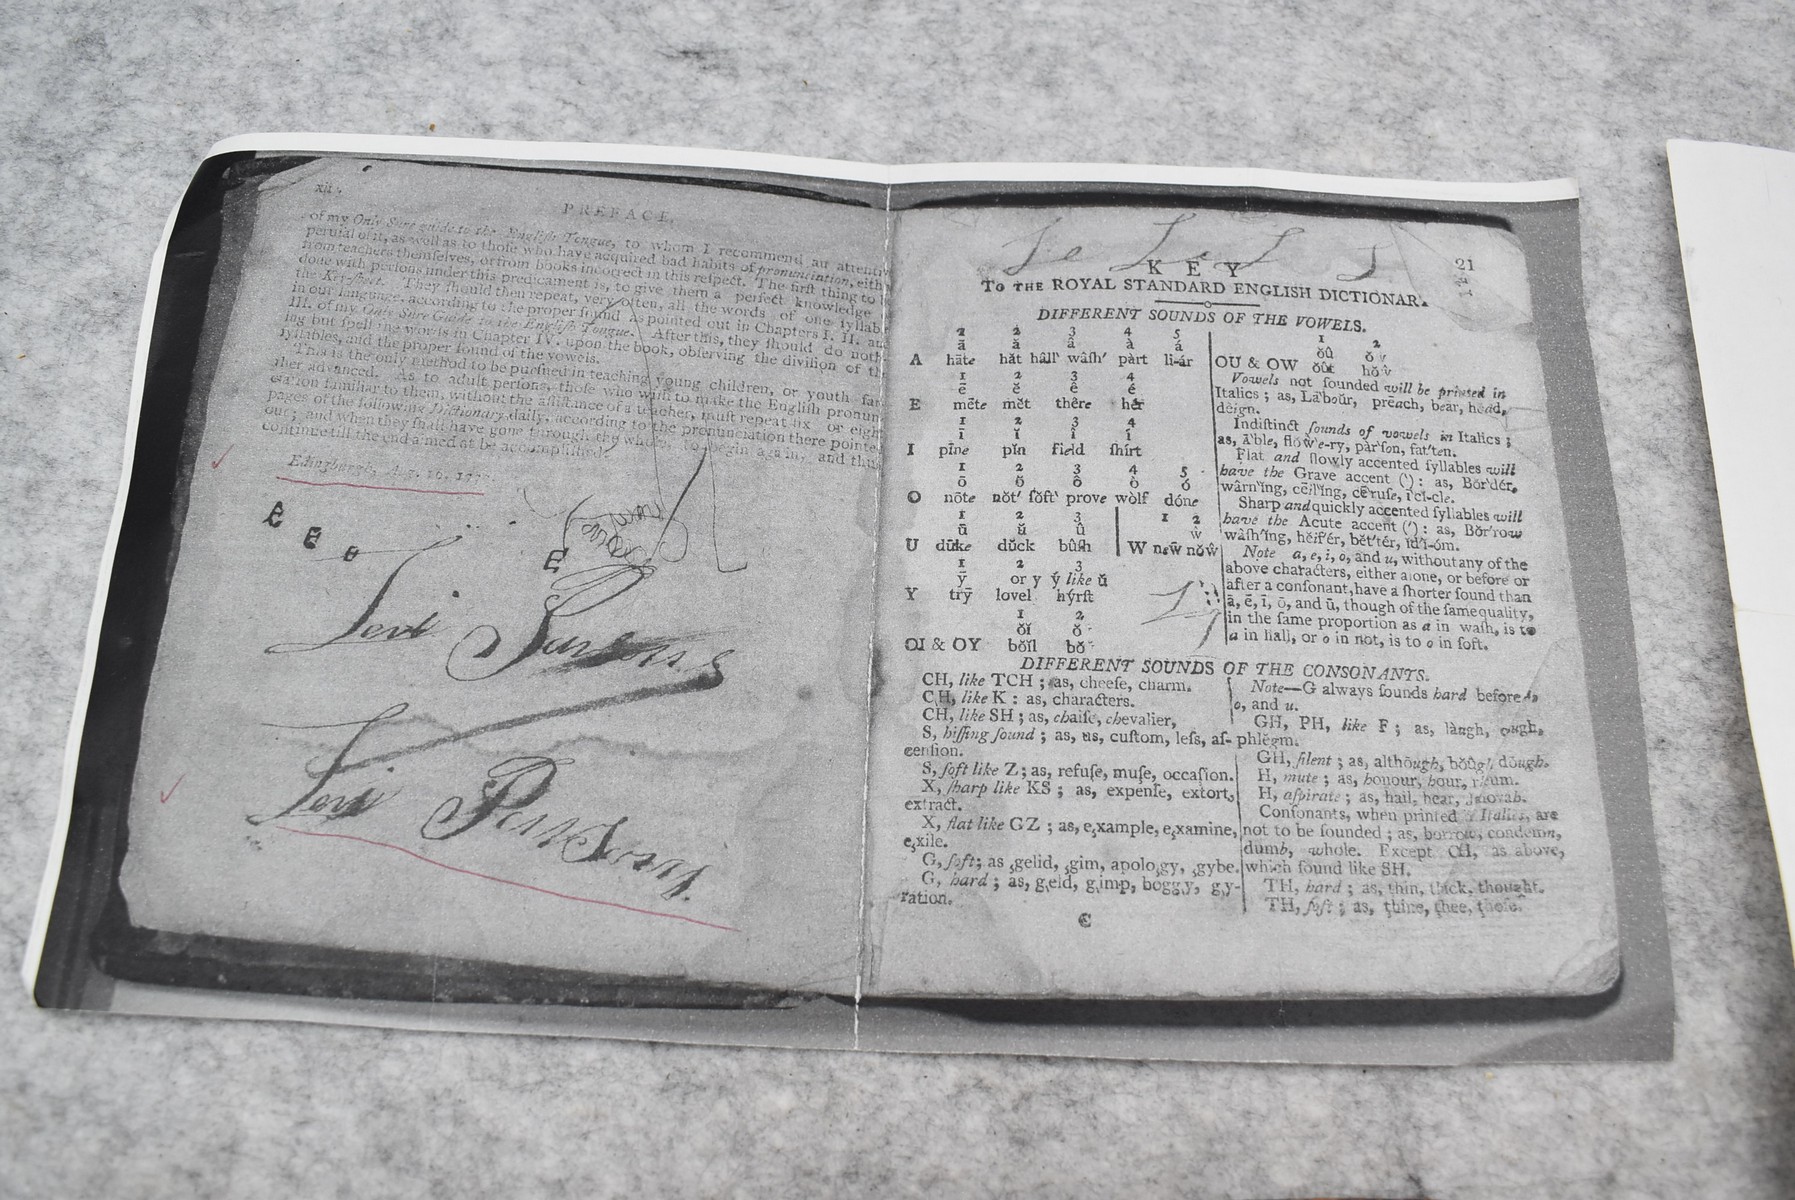 xii
PREFACE.
of my Only Sure guide to the Engliſh Tongue, to whom I recommend an attentiv
peruſal of it, as well as to thoſe who have acquired bad habits of pronunciation, eith
from teachers themſelves, or from books incorrect in this reſpect. The firſt thing to
done with perſons under this predicament is, to give them a perfect knowledge
the Key-ſheet. They ſhould then repeat, very often, all the words of one ſyllab
in our language, according to the proper ſound as pointed out in Chapters I. II. an
III. of my Only Sure Guide to the Engliſh Tongue. After this, they ſhould do noth
ing but ſpell the words in Chapter IV. upon the book, obſerving the diviſion of th
ſyllables, and the proper ſound of the vowels.
This is the only method to be purſued in teaching young children, or youth far
ther advanced. As to adult perſons, thoſe who wiſh to make the Engliſh pronun
ciation familiar to them, without the aſſiſtance of a teacher, muſt repeat ſix or eigh
pages of the following Dictionary daily, according to the pronunciation there pointe
out; and when they ſhall have gone through the whole, to begin again, and thus
continue till the end aimed at be accompliſhed.
Edinburgh,
E
E
e
E
Levi Parsons
Levi Parsons
21
KEY
To THE ROYAL STANDARD ENGLISH DICTIONAR
DIFFERENT SOUNDS OF THE VOWELS.
2 3 4 5
ā ă â à á
A hāte hăt hâll' wâſh' pàrt li-ár
1 2 3 4
ē ĕ ê é
E mēte mĕt thêre hér
1 2 3 4
ī ĭ î í
I pīne pĭn fîeld ſhírt
1 2 3 4 5
ō ŏ ô ò ó
O nōte nŏt' ſŏft' prove wòlf dóne
1 2 3
ū ŭ û
U dūke dŭck bûſh
1 2
ŵ
W new̄ nŏŵ
1 2 3
ȳ or y ý like ŭ
Y trȳ lovel hýrſt
1 2
ŏĭ ŏ
OI & OY bŏĭl bŏ
1 2
ŏŭ ŏ
OU & OW ŏŭt hŏv
Vowels not ſounded will be printed in
Italics; as, Lā'boŭr, prēach, bear, head,
deign.
Indiſtinct ſounds of vowels in Italics;
as, ā'ble, flŏw'e-ry, pàr'ſon, fat'ten.
Flat and ſlowly accented ſyllables will
have the Grave accent (`): as, Bŏr'dér,
wârn'ing, cēil'ing, cēruſe, i'ci-cle.
Sharp and quickly accented ſyllables will
have the Acute accent ('): as, Bŏr'row
wâſh'ing, hĕif'ér, bĕt'tér, ĭd'ĭ-óm.
Note a, e, i, o, and u, without any of the
above characters, either alone, or before or
after a conſonant, have a ſhorter ſound than
ā, ē, ī, ō, and ū, though of the ſame quality,
in the ſame proportion as a in waſh, is to
a in hall, or o in not, is to o in ſoft.
DIFFERENT SOUNDS OF THE CONSONANTS.
CH, like TCH; as, cheeſe, charm.
CH, like K: as, characters.
CH, like SH; as, chaiſe, chevalier,
S, hiſſing ſound; as, us, cuſtom, leſs, aſ-
cenſion.
S, ſoft like Z; as, refuſe, muſe, occaſion.
X, ſharp like KS; as, expenſe, extort,
extract.
X, flat like GZ; as, example, examine,
exile.
G, ſoft; as gelid, gim, apology, gybe.
G, hard; as, geld, gimp, boggy, gy-
ration.
Note—G always ſounds hard before a,
o, and u.
GH, PH, like F; as, làugh, cough,
phlĕgm.
GH, ſilent; as, althŏugh, bŏŭgh, dŏugh.
H, mute; as, honour, hour, rheum.
H, aſpirate; as, hail, hear, Jehovah.
Conſonants, when printed Italics, are
not to be ſounded; as, borrow, condemn,
dumb, whole. Except CH, as above,
which ſound like SH.
TH, hard; as, thin, thick, thought.
TH, ſoft; as, thine, thee, thoſe.
C